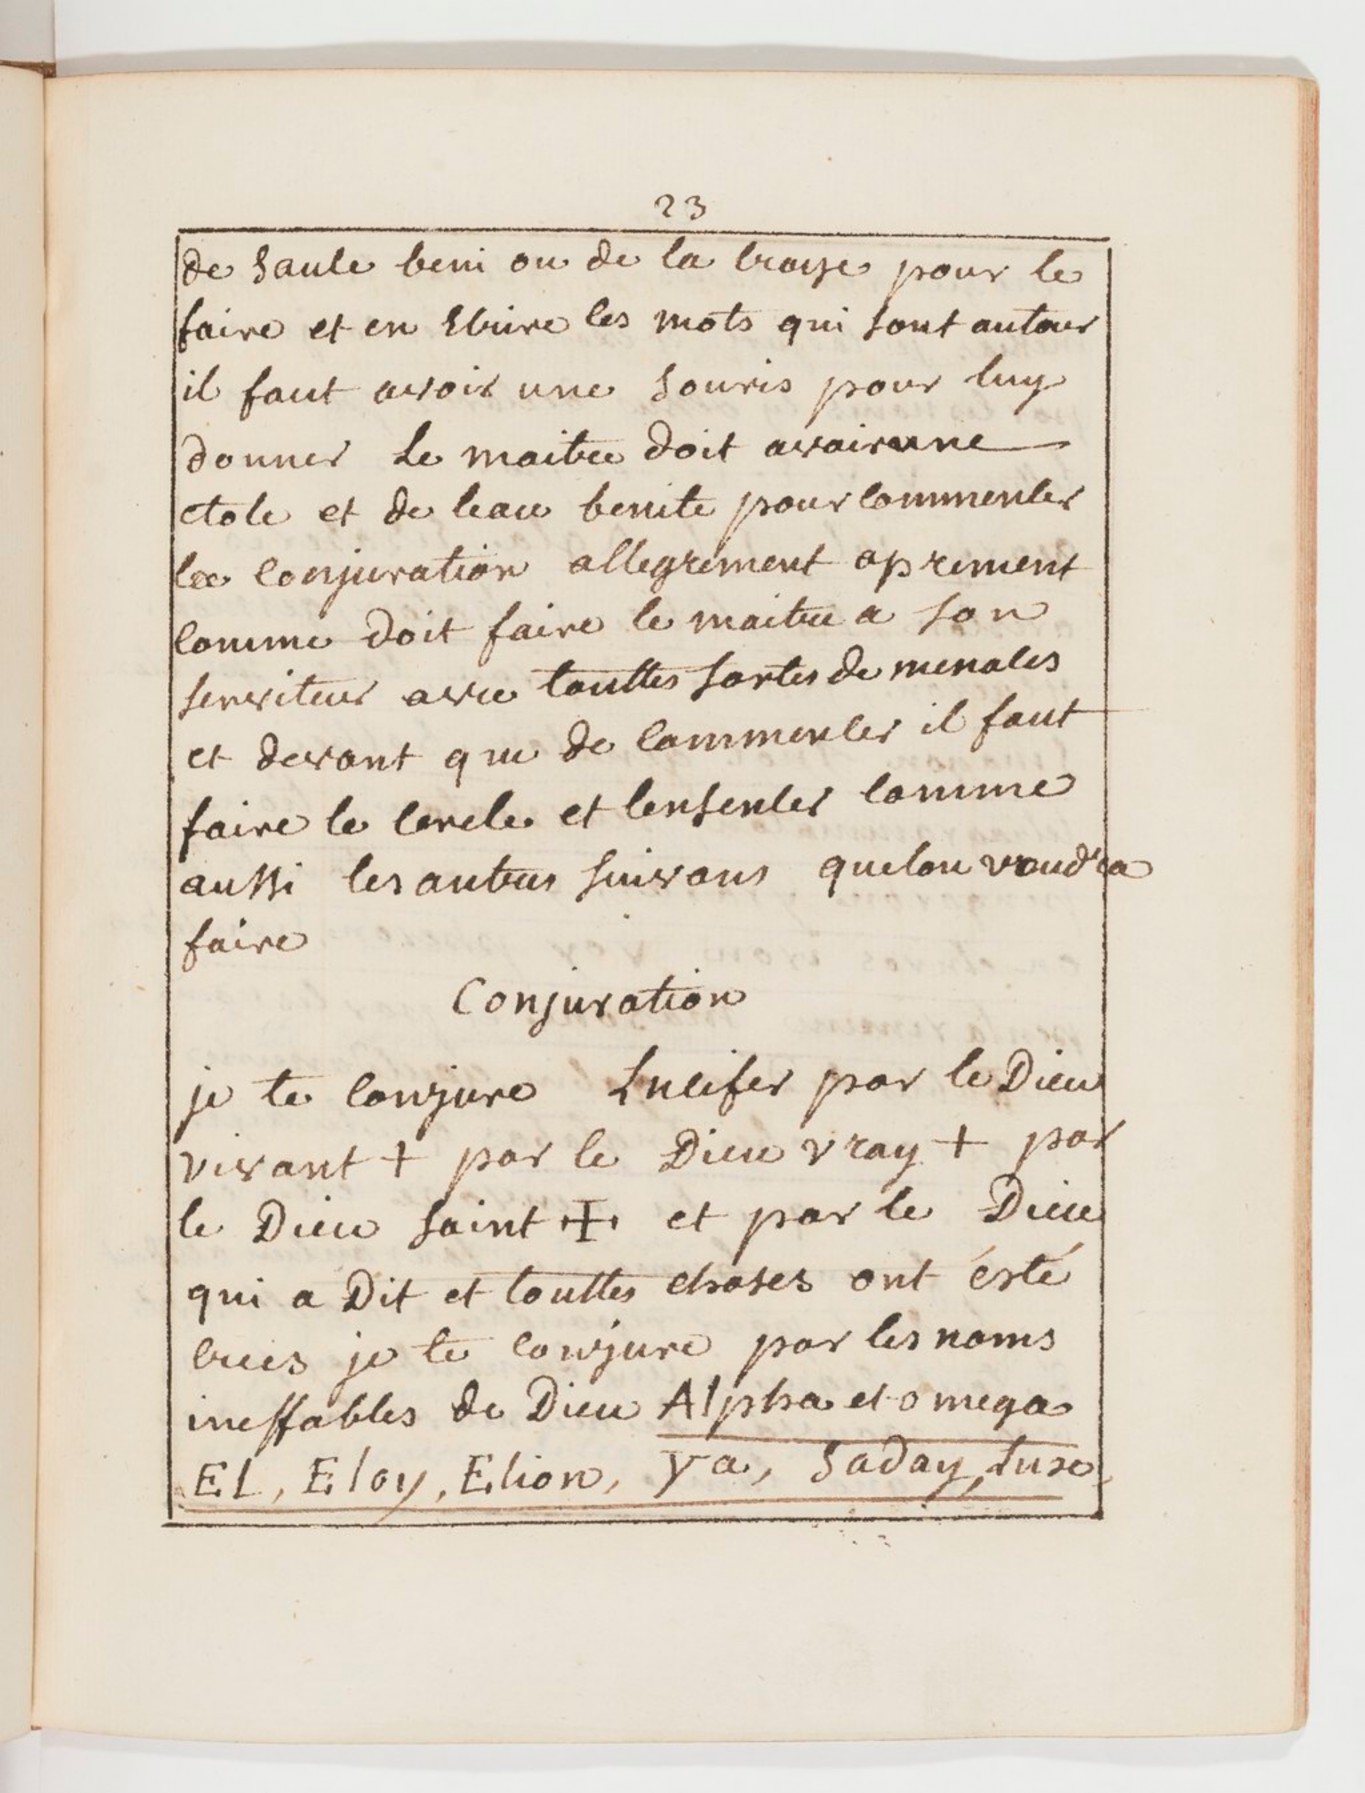 23
de saule beni ou de la brayse pour le
faire et en Ecrire les mots qui sont autour
il faut avoir une souris pour luy
donner Le maitre doit avoir une
etole et de leau benite pour commencer
la conjuration allegrement aprement
comme doit faire le maitre a son
serviteur avec touttes sortes de menaces
et devant que de commencer il faut
faire le cercle et lensenser comme
aussi les autres suivans quelon voudra
faire
Conjuration
je te conjure Lucifer par le Dieu
vivant + par le Dieu vray + par
le Dieu saint + et par le Dieu
qui a Dit et touttes choses ont ésté
crees je te conjure par les noms
ineffables de Dieu Alpha et omega
EL, Eloy, Elion, ya, Saday,